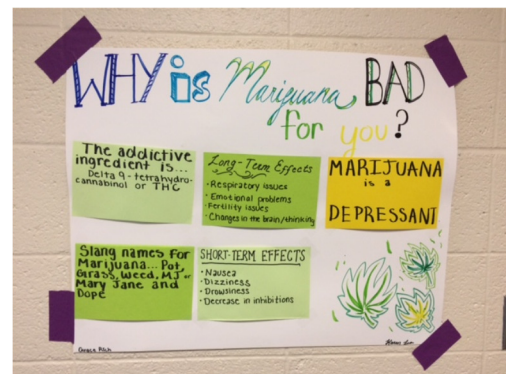 WHY is Marijuana BAD
for you?
The addictive
ingredient is...
Delta 9-tetrahydro-
cannabinol or THC
Long-Term Effects
• Respiratory issues
• Emotional problems
• Fertility issues
• Changes in the brain/thinking
MARIJUANA
is a
DEPRESSANT
Slang names for
Marijuana... Pot,
Grass, Weed, MJ or
Mary Jane and
Dope
SHORT-TERM EFFECTS
• Nausea
• Dizziness
• Drowsiness
• Decrease in inhibitions